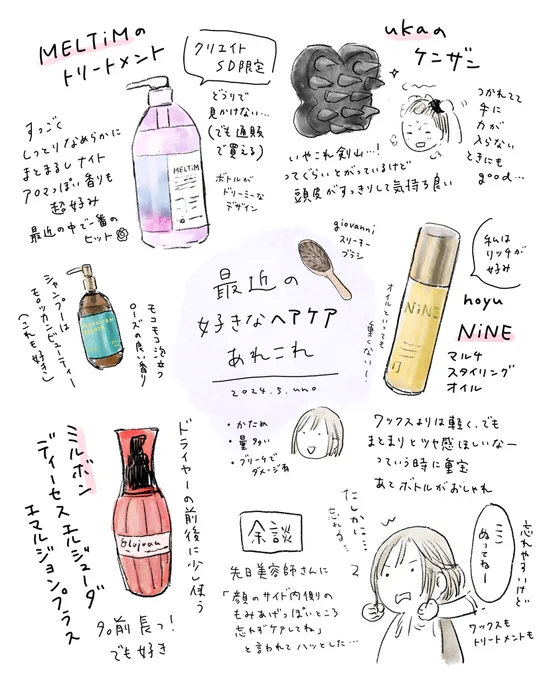 MELTiMの
トリートメント
クリエイト
SD限定
どうりで
見かけない…
(でも通販
で買える)
すっごく
しっとりなめらかに
まとまるしナイト
アロマっぽい香りも
超好み
最近の中で一番の
ヒット
MELTiM
ボトルが
ドリーミーな
デザイン
ukaの
ケンザン
つかれてて
手に
力が
入らない
ときにも
good…
いやこれ剣山…!
ってぐらいとがっているけど
頭皮がすっきりして気持ち良い
giovanni
スリーキー
ブラシ
最近の
好きなヘアケア
あれこれ
2024.5.uno
シャンプーは
モロッカンビューティー
(これも好き)
モコモコ泡立つ
ローズの良い香り
オイルといっても
重くない!
NiNE
私は
リッチが
好み
hoyu
NiNE
マルチ
スタイリング
オイル
ワックスよりは軽く、でも
まとまりとツヤ感ほしいなー
っていう時に重宝
あとボトルがおしゃれ
・かため
・量多い
・ブリーチで
ダメージ有
ミルボン
ディーセス エルジューダ
エマルジョンプラス
Elujuda
ドライヤーの前後に少し使う
90前長っ!
でも好き
余談
先日美容師さんに
「顔のサイド内側の
もみあげっぽいところ
忘れずケアしてね」
と言われてハッとした…
たしかに…
忘れる…
ココ
ぬってねー
忘れやすいけど
ワックスも
トリートメントも